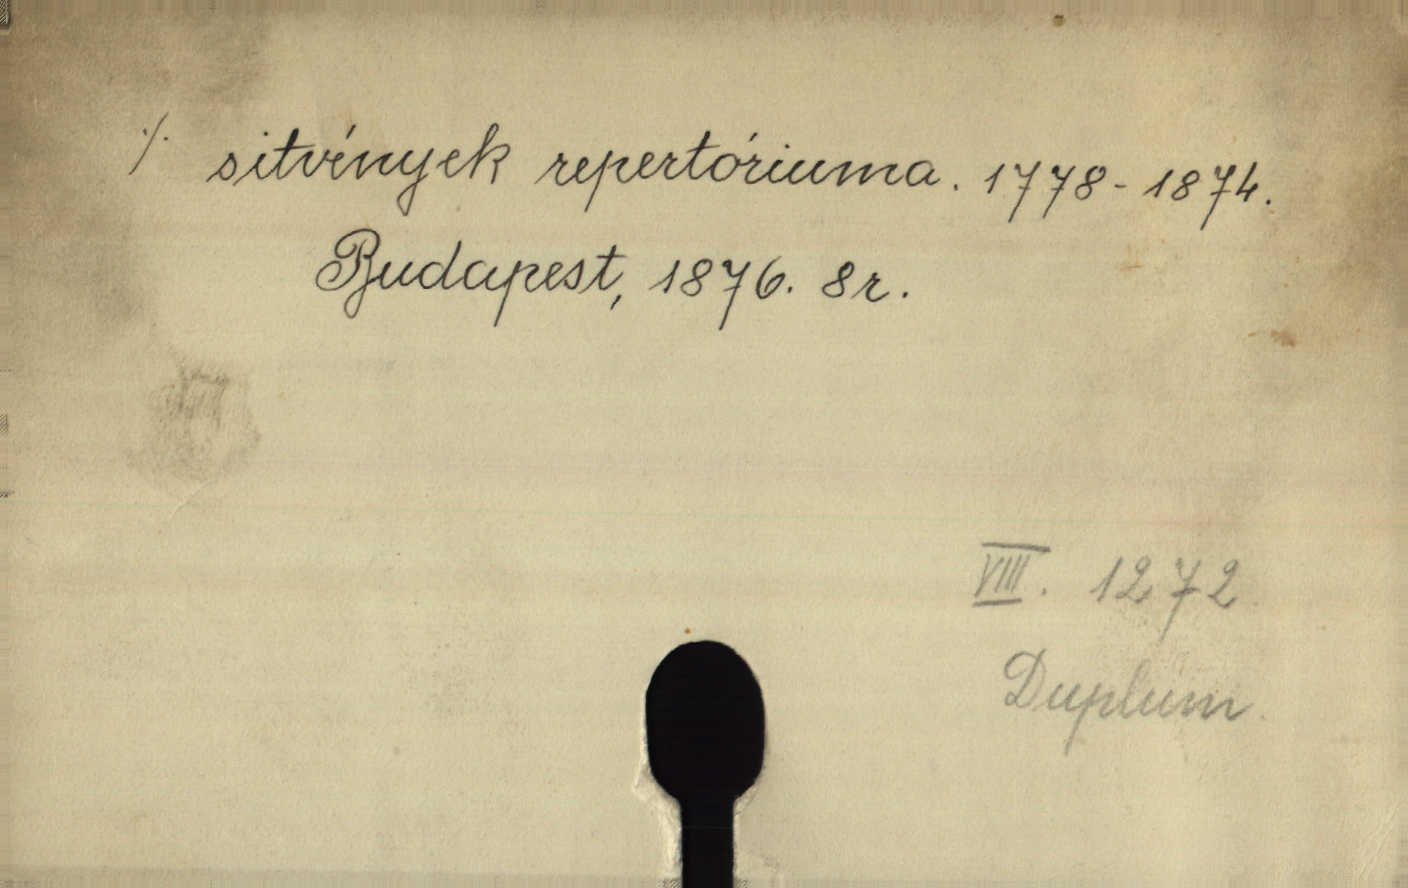 ./. sitvények repertóriuma. 1778-1874.
Budapest, 1876. 8r.
VIII. 1272
Duplum.